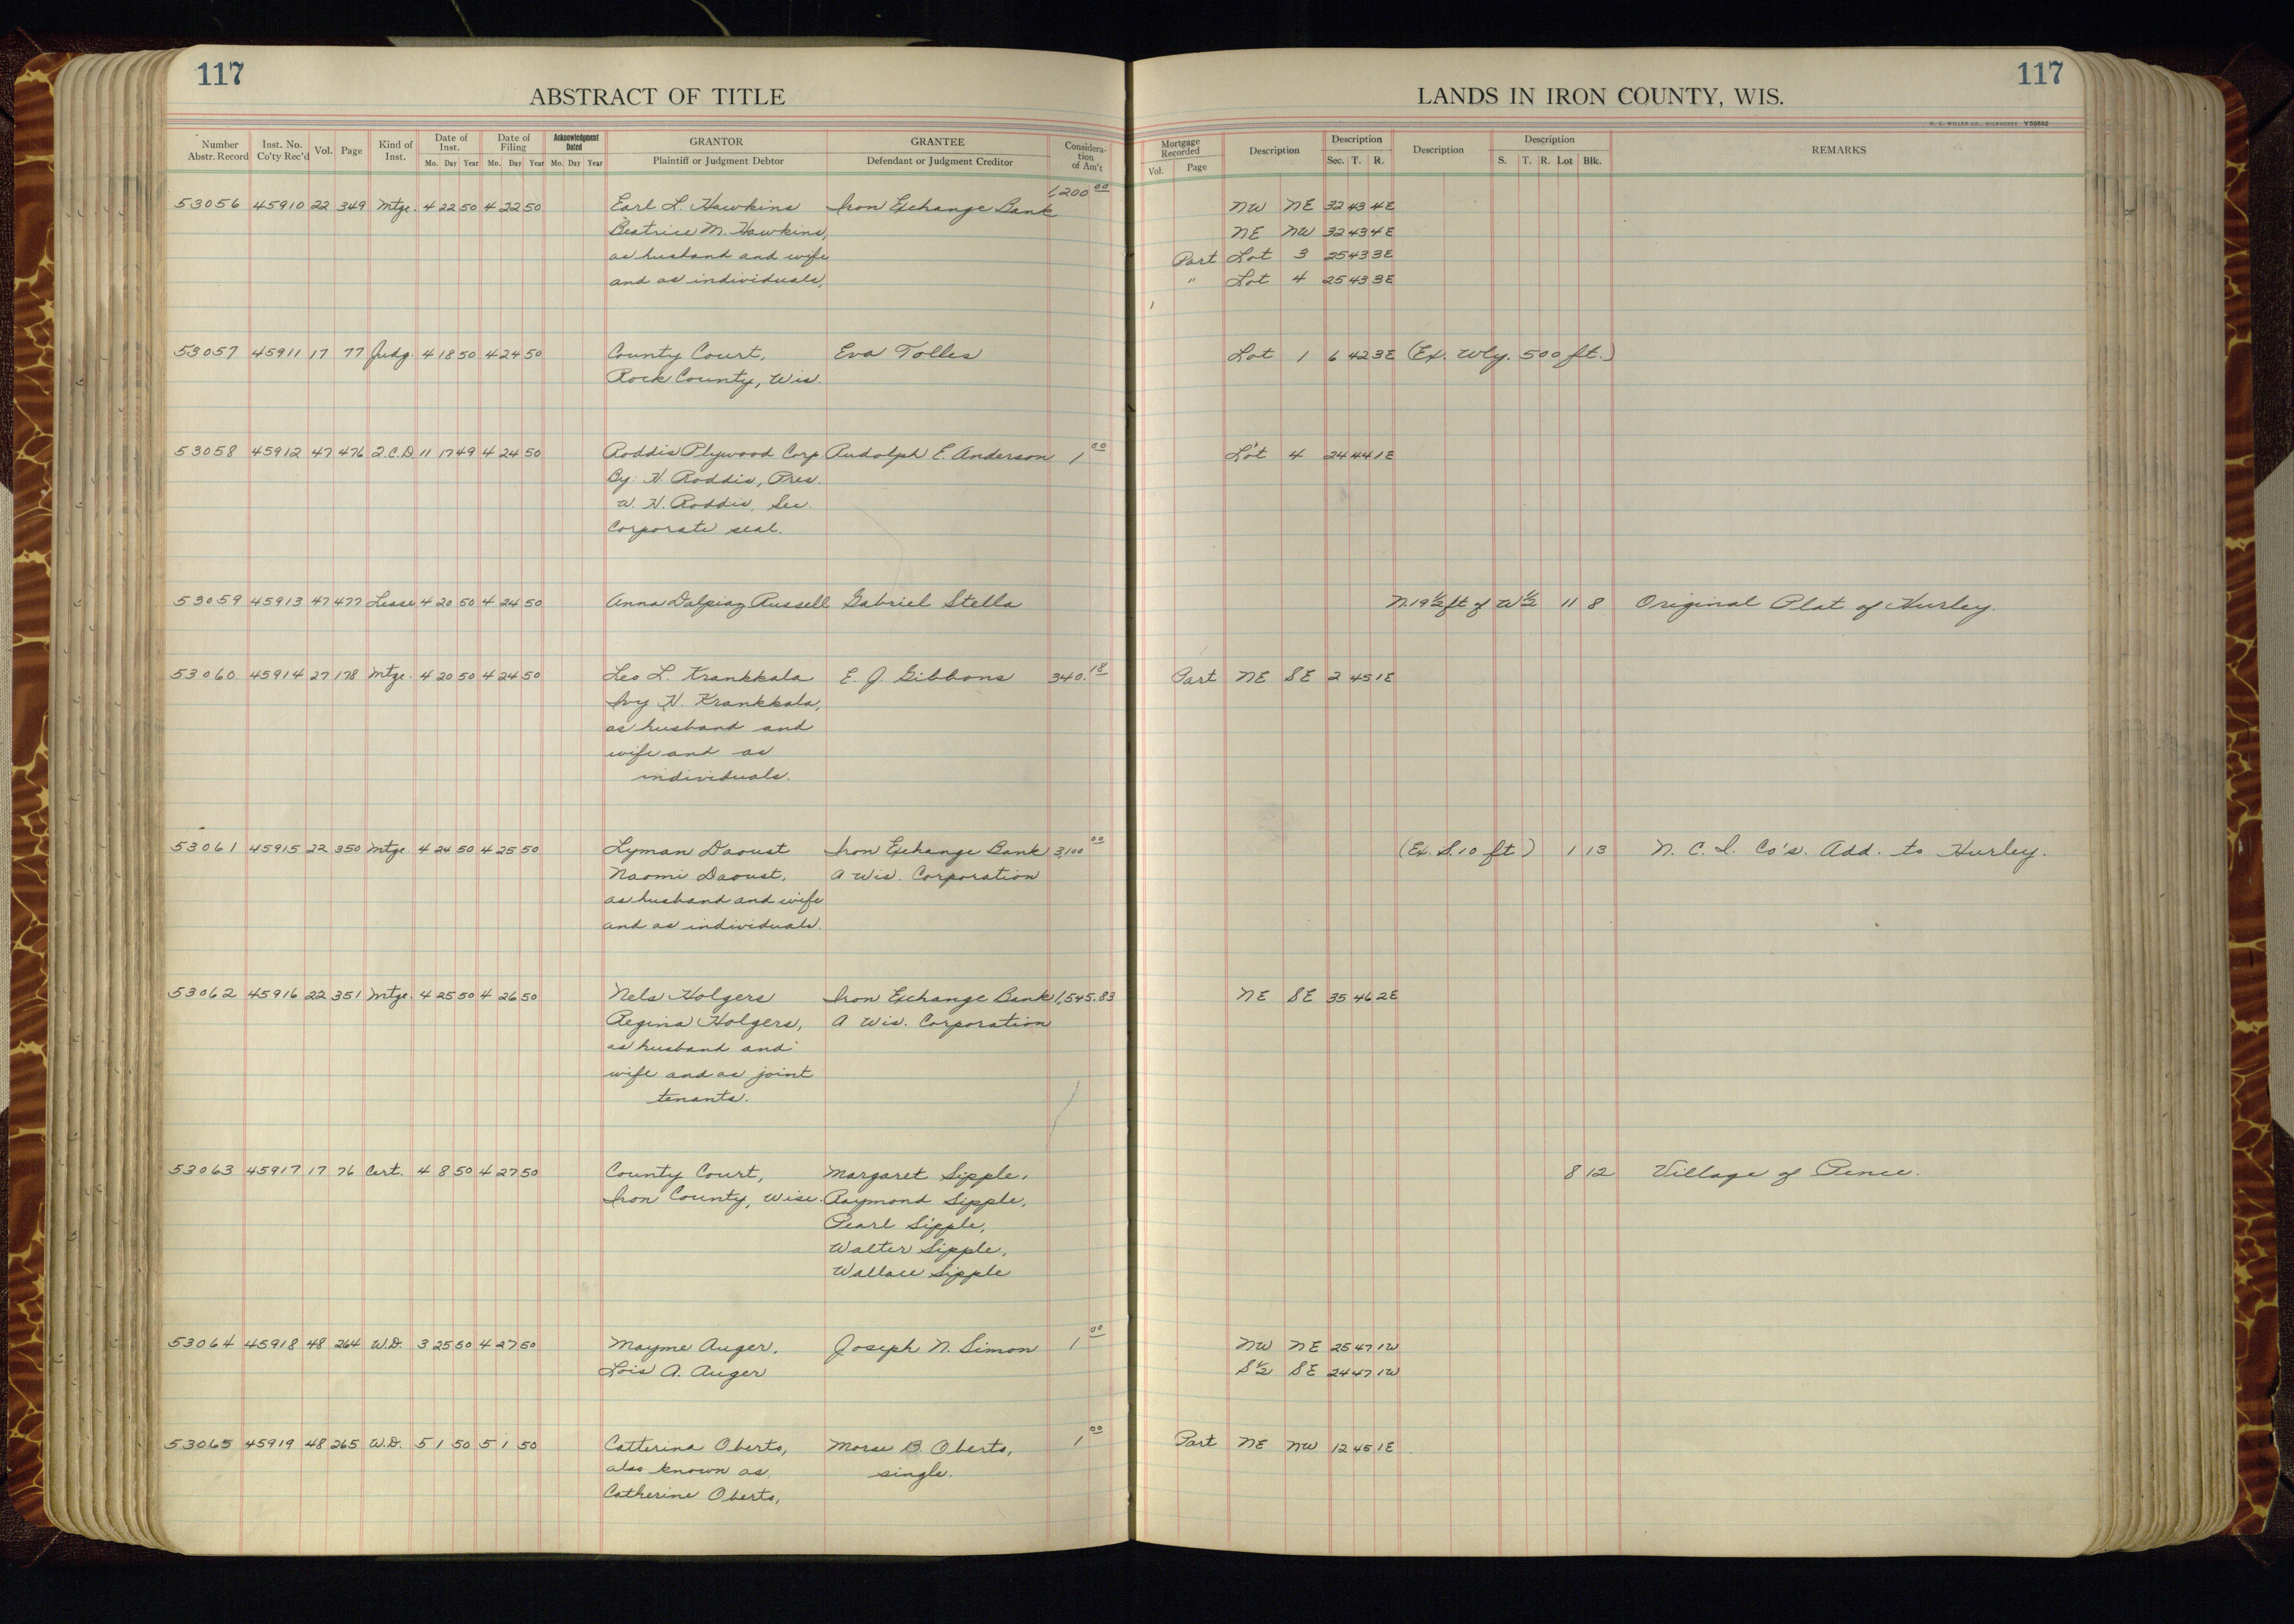 117
ABSTRACT OF TITLE
Number Abstr. Record Inst. No. Co'ty Rec'd Vol. Page Kind of Inst. Date of Inst. Mo. Day Year Date of Filing Mo. Day Year Acknowledgment Dated Mo. Day Year GRANTOR Plaintiff or Judgment Debtor GRANTEE Defendant or Judgment Creditor Considera-tion of Am't
53056 45910 22 349 Mtge. 4 22 50 4 22 50 Earl L. Hawkins Iron Exchange Bank 1,200 00
Beatrice M. Hawkins,
as husband and wife
and as individuals,
53057 45911 17 77 Judg. 4 18 50 4 24 50 County Court, Eva Tolles
Rock County, Wis.
53058 45912 47 476 Q.C.D. 11 17 49 4 24 50 Roddis Plywood Corp. Rudolph E. Anderson 1 00
By: H. Roddis, Pres.
W. H. Roddis, Sec.
Corporate seal.
53059 45913 47 477 Lease 4 20 50 4 24 50 Anna Dalpiaz Russell Gabriel Stella
53060 45914 27 178 Mtge. 4 20 50 4 24 50 Leo L. Krankkala E. J. Gibbons 340. 18
Ivy H. Krankkala,
as husband and
wife and as
individuals.
53061 45915 22 350 Mtge. 4 24 50 4 25 50 Lyman Daoust Iron Exchange Bank 3,100 00
Naomi Daoust, A Wis. Corporation
as husband and wife
and as individuals.
53062 45916 22 351 Mtge. 4 25 50 4 26 50 Nels Holgers Iron Exchange Bank 1,545.83
Regina Holgers, A Wis. Corporation
as husband and
wife and as joint
tenants.
53063 45917 17 76 Cert. 4 8 50 4 27 50 County Court, Margaret Sipple,
Iron County, Wisc. Raymond Sipple,
Pearl Sipple,
Walter Sipple,
Wallace Sipple
53064 45918 48 264 W.D. 3 25 50 4 27 50 Mayme Auger, Joseph N. Simon 1 00
Lois A. Auger
53065 45919 48 265 W.D. 5 1 50 5 1 50 Catterina Oberto, Morse B. Oberto, 1 00
also known as, single.
Catherine Oberto,
117
LANDS IN IRON COUNTY, WIS.
H. C. MILLER CO., MILWAUKEE V56882
Mortgage Recorded Vol. Page Description Description Sec. T. R. Description Description S. T. R. Lot Blk. REMARKS
NW NE 32 43 4E
NE NW 32 43 4E
Part Lot 3 25 43 3E
" Lot 4 25 43 3E
Lot 1 6 42 3E (Ex. Wly. 500 ft.)
Lot 4 24 44 1E
N.19 1/2 ft of W 1/2 11 8 Original Plat of Hurley.
Part NE SE 2 45 1E
(Ex. S. 10 ft) 1 13 N. C. I. Co's. Add. to Hurley.
NE SE 35 46 2E
8 12 Village of Pence.
NW NE 25 47 1W
S 1/2 SE 24 47 1W
Part NE NW 12 45 1E